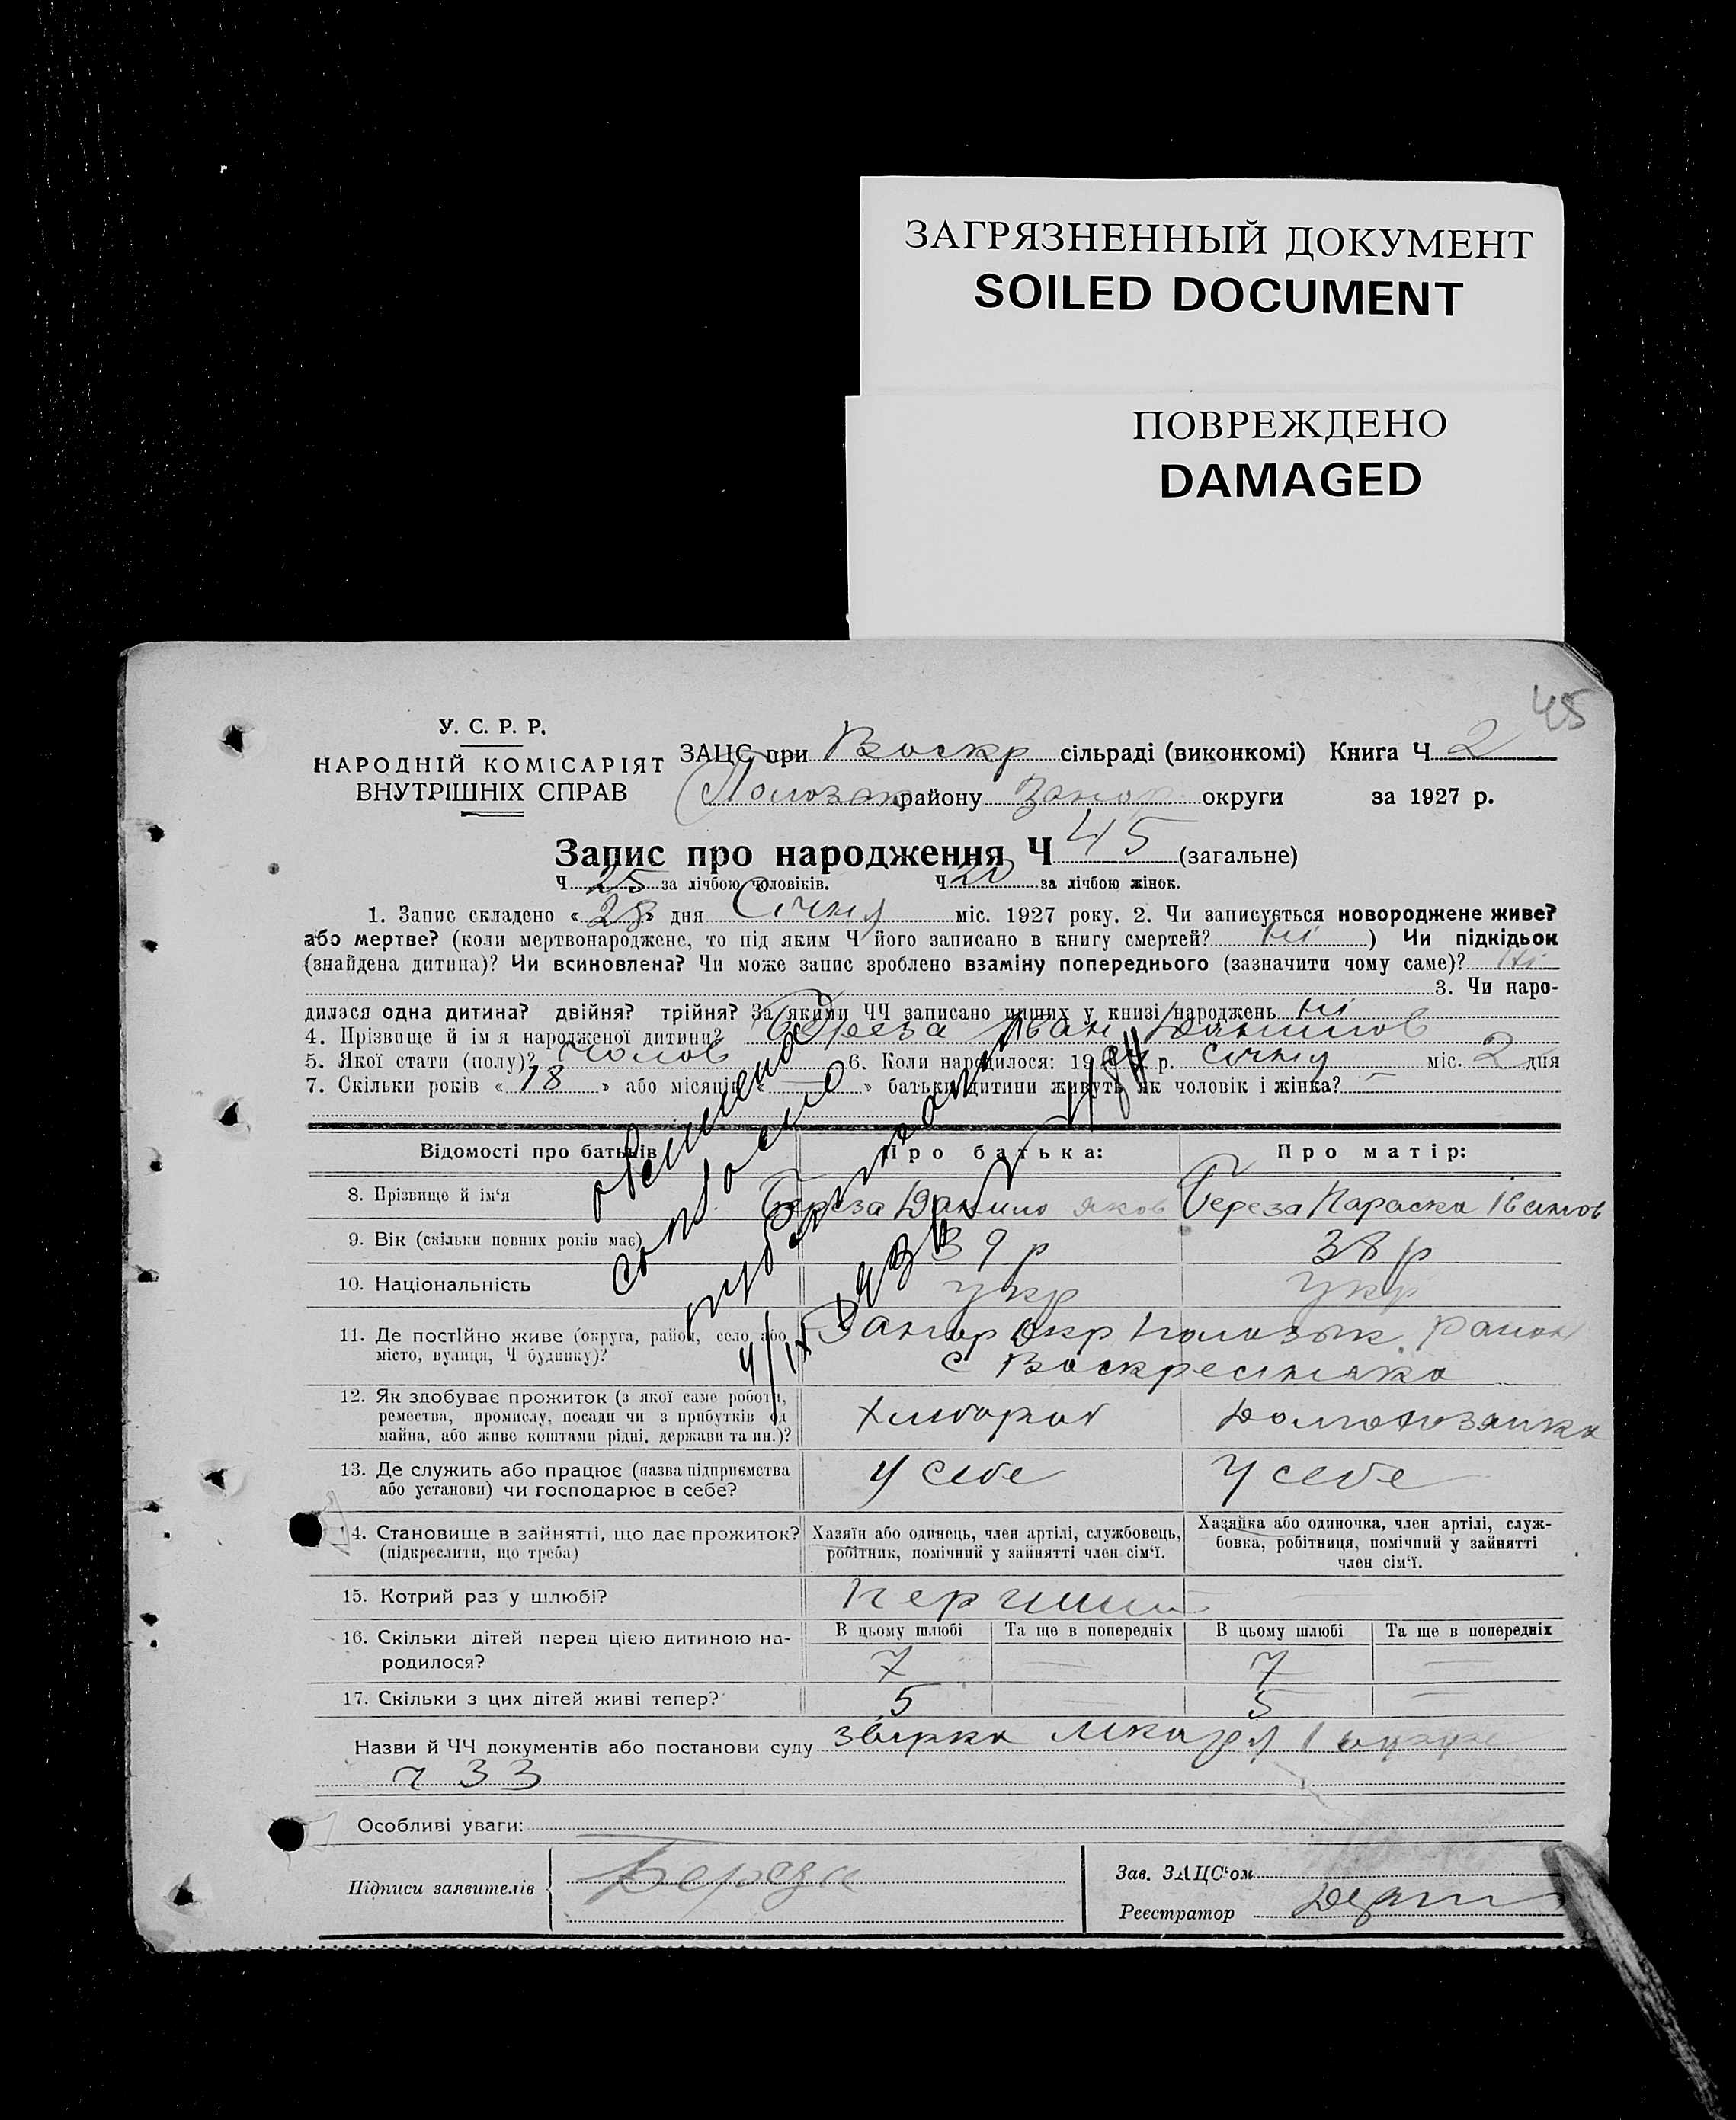 ЗАГРЯЗНЕННЫЙ ДОКУМЕНТ
SOILED DOCUMENT
ПОВРЕЖДЕНО
DAMAGED
45
У. С. Р. Р.
НАРОДНІЙ КОМІСАРІЯТ
ВНУТРІШНІХ СПРАВ
ЗАЦС при Воскр сільраді (виконкомі) Книга Ч 2
району Запор округи за 1927 р.
Запис про народження Ч 45 (загальне)
Ч 25 за лічбою чоловіків. Ч 20 за лічбою жінок.
1. Запис складено « 28 » дня Січня міс. 1927 року. 2. Чи записується новороджене живе?
або мертве? (коли мертвонароджене, то під яким Ч його записано в книгу смертей? ні ) Чи підкідьок
(знайдена дитина)? Чи всиновлена? Чи може запис зроблено взаміну попереднього (зазначити чому саме)? Ні
3. Чи наро-
дилася одна дитина? двійня? трійня? За якими ЧЧ записано инших у книзі народжень ні
4. Прізвище й ім я народженої дитини? Береза Іван Данилов
5. Якої стати (полу)? чолов 6. Коли народилося: 19 р. січня міс. 2 дня
7. Скільки років « 18 » або місяців « — » батьки дитини живуть як чоловік і жінка? —
Відомості про батьків Про батька: Про матір:
8. Прізвище й ім‘я Береза Данило Яков Береза Параска Іванов
9. Вік (скільки повних років має) 39 р 38 р
10. Національність укр укр
11. Де постійно живе (округа, район, село або Запор Окр Пологівськ район
місто, вулиця, Ч будинку)? с Воскресенька
12. Як здобуває прожиток (з якої саме роботи,
ремества, промислу, посади чи з прибутків од
майна, або живе коштами рідні, держави та ин.)? Хлібороб
13. Де служить або працює (назва підприємства
або установи) чи господарює в себе? У себе У себе
14. Становище в зайнятті, що дає прожиток?
(підкреслити, що треба)
Хазяїн або одинець, член артілі, службовець,
робітник, помічний у зайнятті член сім‘ї.
Хазяйка або одиночка, член артілі, служ-
бовка, робітниця, помічний у зайнятті
член сім‘ї.
15. Котрий раз у шлюбі?
16. Скільки дітей перед цією дитиною на-
родилося?
В цьому шлюбі Та ще в попередніх В цьому шлюбі Та ще в попередніх
7 — 7 —
17. Скільки з цих дітей живі тепер? 5 — 5 —
Назви й ЧЧ документів або постанови суду
ч 33
Особливі уваги:
Підписи заявителів Береза
Зав. ЗАЦС‘ом
Реєстратор